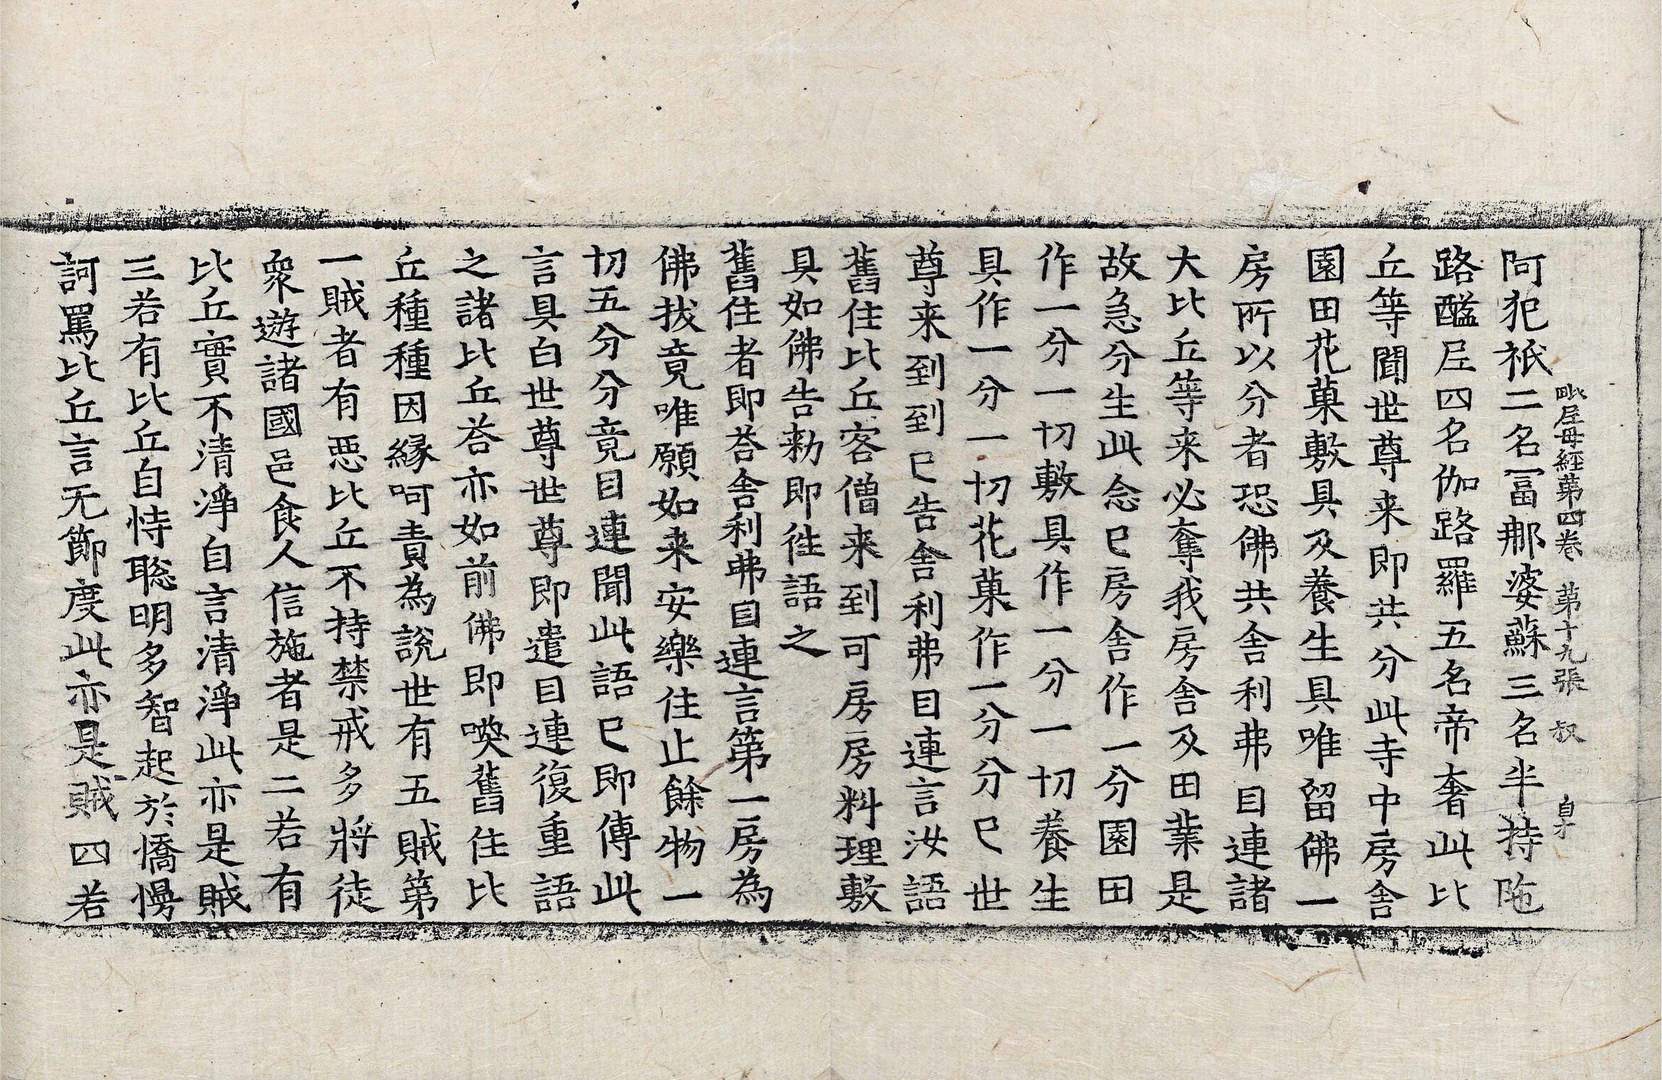 阿犯祇二名冨那婆蘇三名半持陁
毗尼母經第四卷 第十九張 叔
路醯尼四名伽路羅五名帝奢此比
丘等聞世尊来即共分此寺中房舎
園田花菓敷具及養生具唯留佛一
房所以分者恐佛共舎利弗目連諸
大比丘等来必奪我房舎及田業是
故急分生此念已房舎作一分園田
作一分一切敷具作一分一切養生
具作一分一切花菓作一分分已世
尊来到到已告舎利弗目連言汝語
舊住比丘客僧来到可房房料理敷
具如佛告勑即往語之
舊住者即荅舎利弗目連言第一房為
佛拔竟唯願如来安樂住止餘物一
切五分分竟目連聞此語已即傳此
言具白世尊世尊即遣目連復重語
之諸比丘荅亦如前佛即喚舊住比
丘種種因縁呵責為說世有五賊第
一賊者有惡比丘不持禁戒多將徒
衆遊諸國邑食人信施者是二若有
比丘實不清淨自言清淨此亦是賊
三若有比丘自恃聡明多智起於憍慢
訶罵比丘言无節度此亦是賊四若